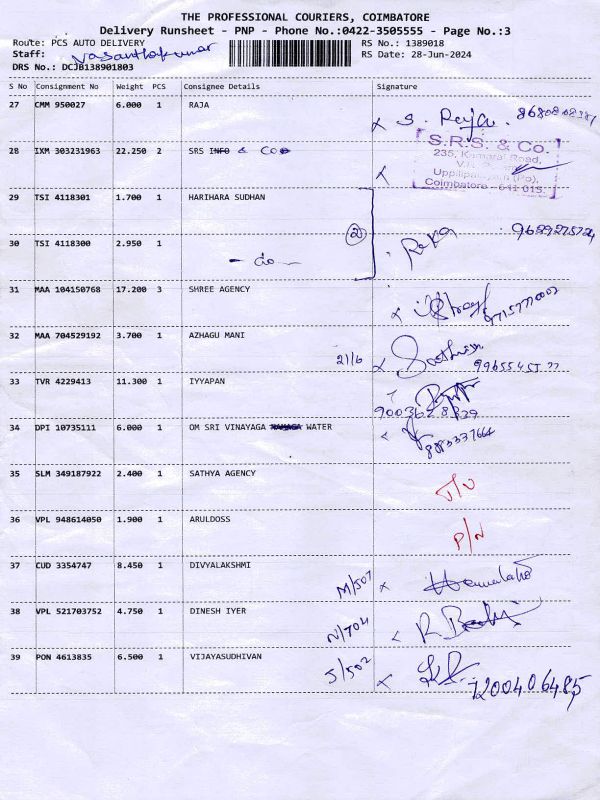 THE PROFESSIONAL COURIERS, COIMBATORE
Delivery Runsheet - PNP - Phone No.:0422-3505555 - Page No.:3
Route: PCS AUTO DELIVERY RS No.: 1389018
Staff: Vasanthakumar RS Date: 28-Jun-2024
DRS No.: DCJB138901803
S No Consignment No Weight PCS Consignee Details Signature
27 CMM 950027 6.000 1 RAJA x S. Raja.
28 IXM 303231963 22.250 2 SRS INFO & CO x
S.R.S. & Co.
235, Kamaraj Road,
Uppilipalayam (Po),
Coimbatore - 641 015.
29 TSI 4118301 1.700 1 HARIHARA SUDHAN
30 TSI 4118300 2.950 1 - do - (2)
31 MAA 104150768 17.200 3 SHREE AGENCY x
32 MAA 704529192 3.700 1 AZHAGU MANI 21/6 x
33 TVR 4229413 11.300 1 IYYAPAN
34 DPI 10735111 6.000 1 OM SRI VINAYAGA WATER
35 SLM 349187922 2.400 1 SATHYA AGENCY
36 VPL 948614050 1.900 1 ARULDOSS P/N
37 CUD 3354747 8.450 1 DIVYALAKSHMI M/507 x
38 VPL 521703752 4.750 1 DINESH IYER N/704
39 PON 4613835 6.500 1 VIJAYASUDHIVAN J/502 x
7200406485